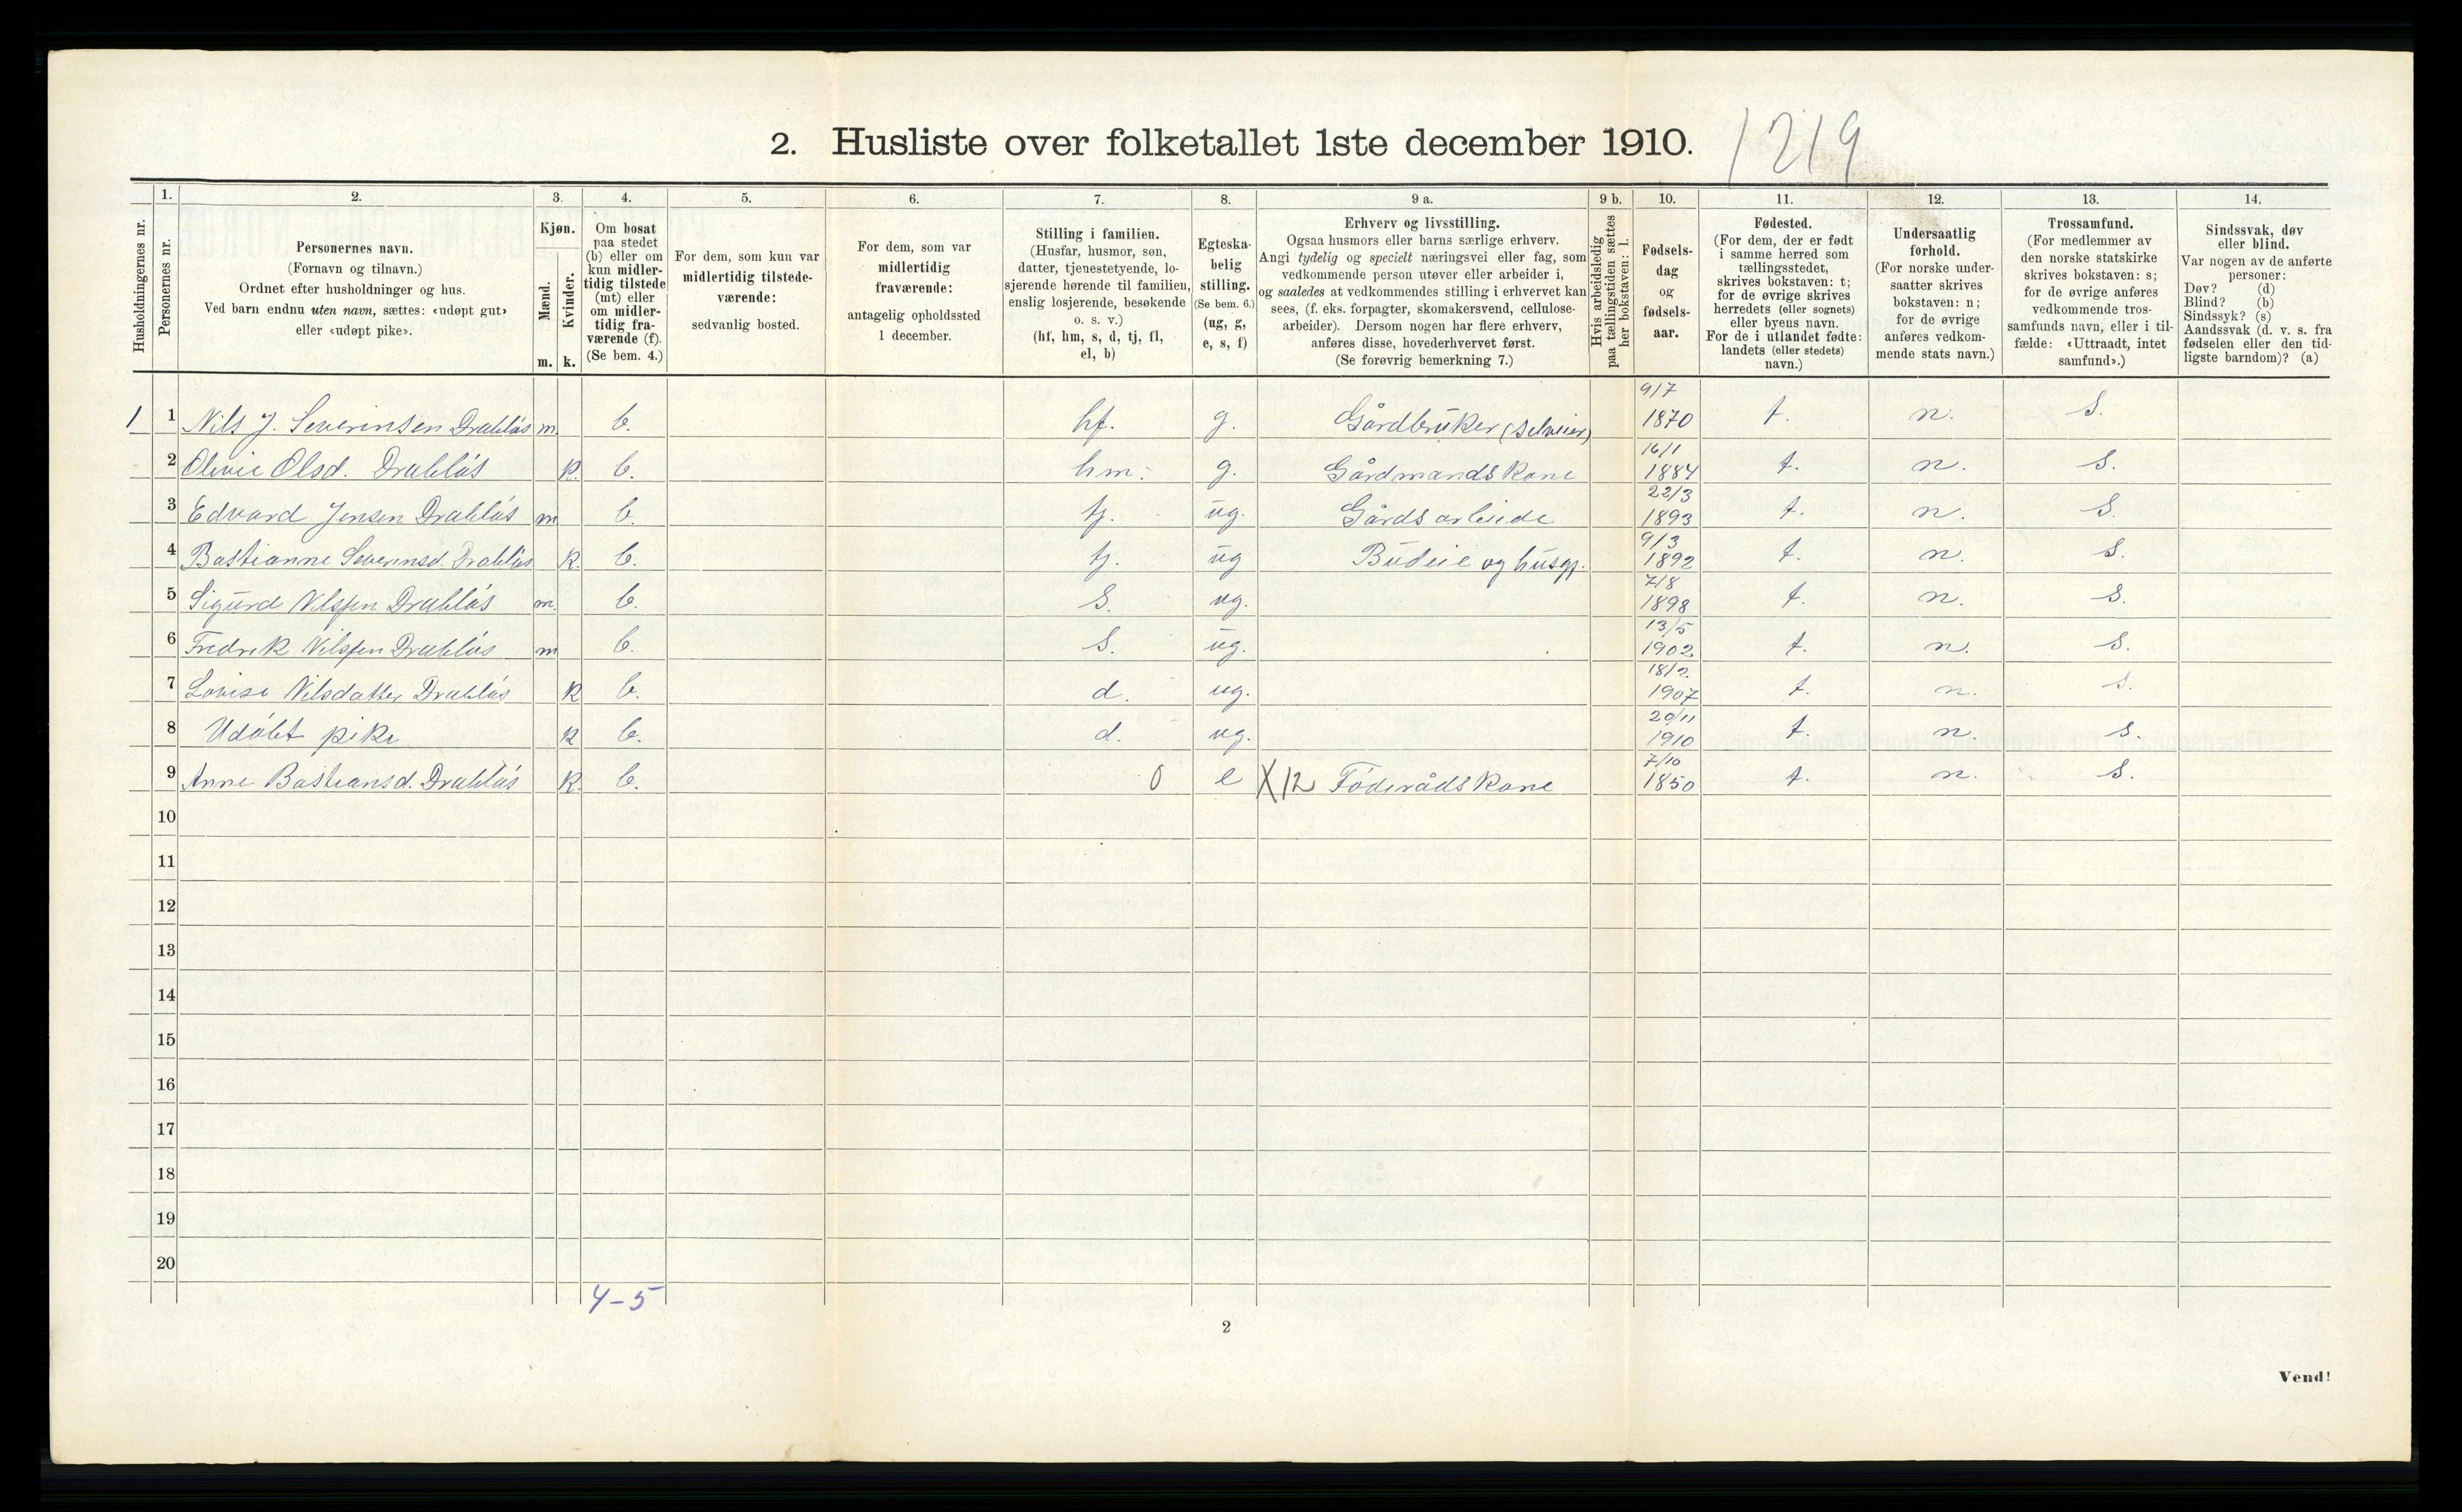 2. Husliste over folketallet 1ste december 1910. 1219
1. 2. 3. 4. 5. 6. 7. 8. 9 a. 9 b. 10. 11. 12. 13. 14.
Husholdningernes nr.
Personernes nr.
Personernes navn.
(Fornavn og tilnavn.)
Ordnet efter husholdninger og hus.
Ved barn endnu uten navn, sættes: «udøpt gut»
eller «udøpt pike».
Kjøn.
Mænd.
Kvinder.
m. k.
Om bosat
paa stedet
(b) eller om
kun midler-
tidig tilstede
(mt) eller
om midler-
tidig fra-
værende (f).
(Se bem. 4.)
For dem, som kun var
midlertidig tilstede-
værende:
sedvanlig bosted.
For dem, som var
midlertidig
fraværende:
antagelig opholdssted
1 december.
Stilling i familien.
(Husfar, husmor, søn,
datter, tjenestetyende, lo-
sjerende hørende til familien,
enslig losjerende, besøkende
o. s. v.)
(hf, hm, s, d, tj, fl,
el, b)
Egteska-
belig
stilling.
(Se bem. 6.)
(ug, g,
e, s, f)
Erhverv og livsstilling.
Ogsaa husmors eller barns særlige erhverv.
Angi tydelig og specielt næringsvei eller fag, som
vedkommende person utøver eller arbeider i,
og saaledes at vedkommendes stilling i erhvervet kan
sees, (f. eks. forpagter, skomakersvend, cellulose-
arbeider). Dersom nogen har flere erhverv,
anføres disse, hovederhvervet først.
(Se forøvrig bemerkning 7.)
Hvis arbeidsledig
paa tællingstiden sættes
her bokstaven: l.
Fødsels-
dag
og
fødsels-
aar.
Fødested.
(For dem, der er født
i samme herred som
tællingsstedet,
skrives bokstaven: t;
for de øvrige skrives
herredets (eller sognets)
eller byens navn.
For de i utlandet fødte:
landets (eller stedets)
navn.)
Undersaatlig
forhold.
(For norske under-
saatter skrives
bokstaven: n;
for de øvrige
anføres vedkom-
mende stats navn.)
Trossamfund.
(For medlemmer av
den norske statskirke
skrives bokstaven: s;
for de øvrige anføres
vedkommende tros-
samfunds navn, eller i til-
fælde: «Uttraadt, intet
samfund».)
Sindssvak, døv
eller blind.
Var nogen av de anførte
personer:
Døv? (d)
Blind? (b)
Sindssyk? (s)
Aandssvak (d. v. s. fra
fødselen eller den tid-
ligste barndom)? (a)
1 1 Nils J. Severinsen Drabløs m. b. hf. g. Gårdbruker (selveier) 9/7 1870 t. n. S.
2 Olivie Olsd. Drabløs k. b. hm. g. Gårdmandskone 16/1 1884 t. n. S.
3 Edvard Jensen Drabløs m b. tj. ug. Gårdsarbeide 22/3 1893 t. n. S.
4 Bastianne Severinsd. Drabløs k. b. tj. ug Budeie og husgj. 9/3 1892 t. n. S.
5 Sigurd Nilssen Drabløs m. b. S. ug. 7/8 1898 t. n. S.
6 Fredrik Nilssen Drabløs m b. S. ug. 13/5 1902 t. n. S.
7 Lovise Nilsdatter Drabløs k b. d. ug. 18/2 1907 t. n. S.
8 Udøbt pike k b. d. ug. 20/11 1910 t. n. S.
9 Anne Bastiansd. Drabløs k. b. 0 e X12 Föderådskone 7/10 1850 t. n. S.
10
11
12
13
14
15
16
17
18
19
20
4-5
2
Vend!